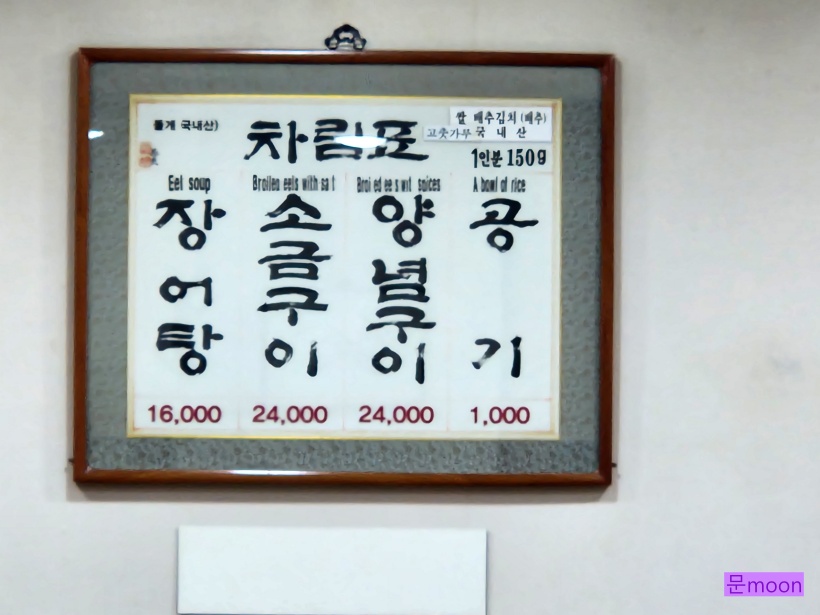 돌게 국내산)
차림표
쌀 배추김치(배추)
고춧가루 국 내 산
1인분 150g
Eel soup
장어탕
16,000
Broiled eels with salt
소금구이
24,000
Broiled eels with spices
양념구이
24,000
A bowl of rice
공기
1,000
문moon